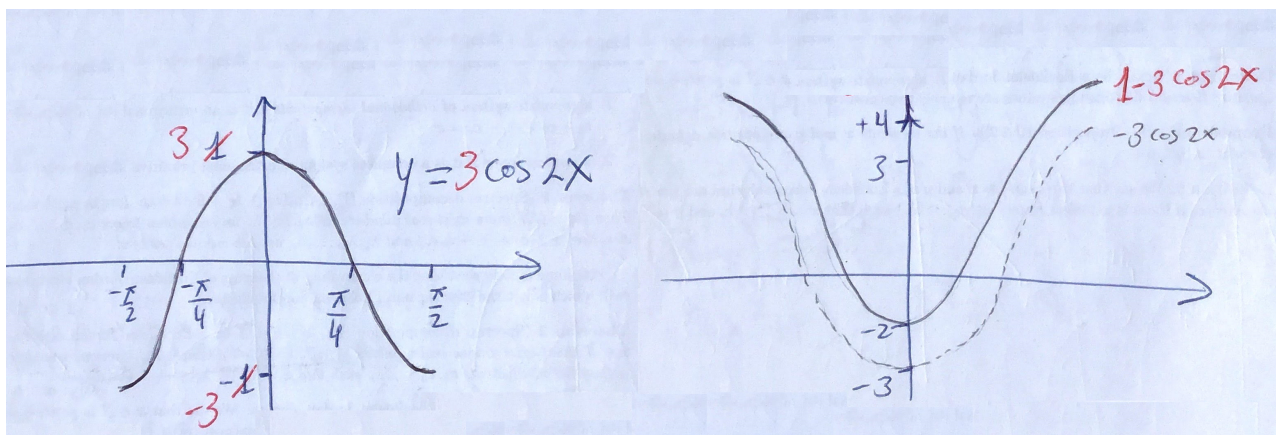 3 1
y = 3 cos 2x
-π/2 -π/4 π/4 π/2
-1
-3
1-3 cos 2x
+4
-3 cos 2x
3
-2
-3